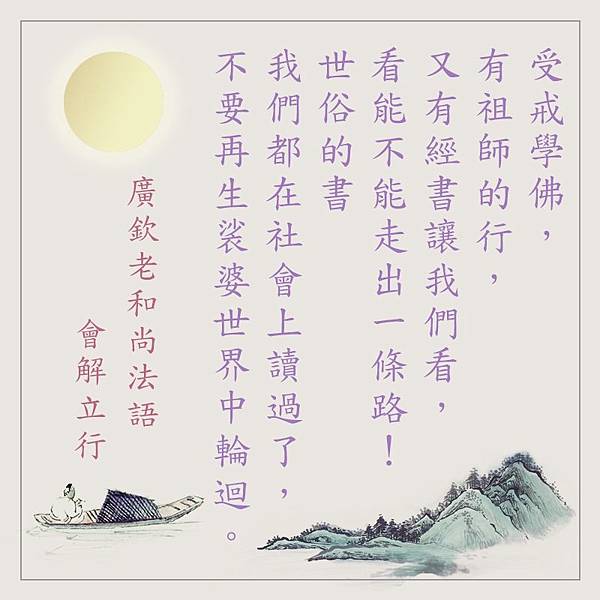 受戒學佛，
有祖師的行，
又有經書讓我們看，
看能不能走出一條路！
世俗的書
我們都在社會上讀過了，
不要再生裟婆世界中輪迴。
廣欽老和尚法語
會解立行